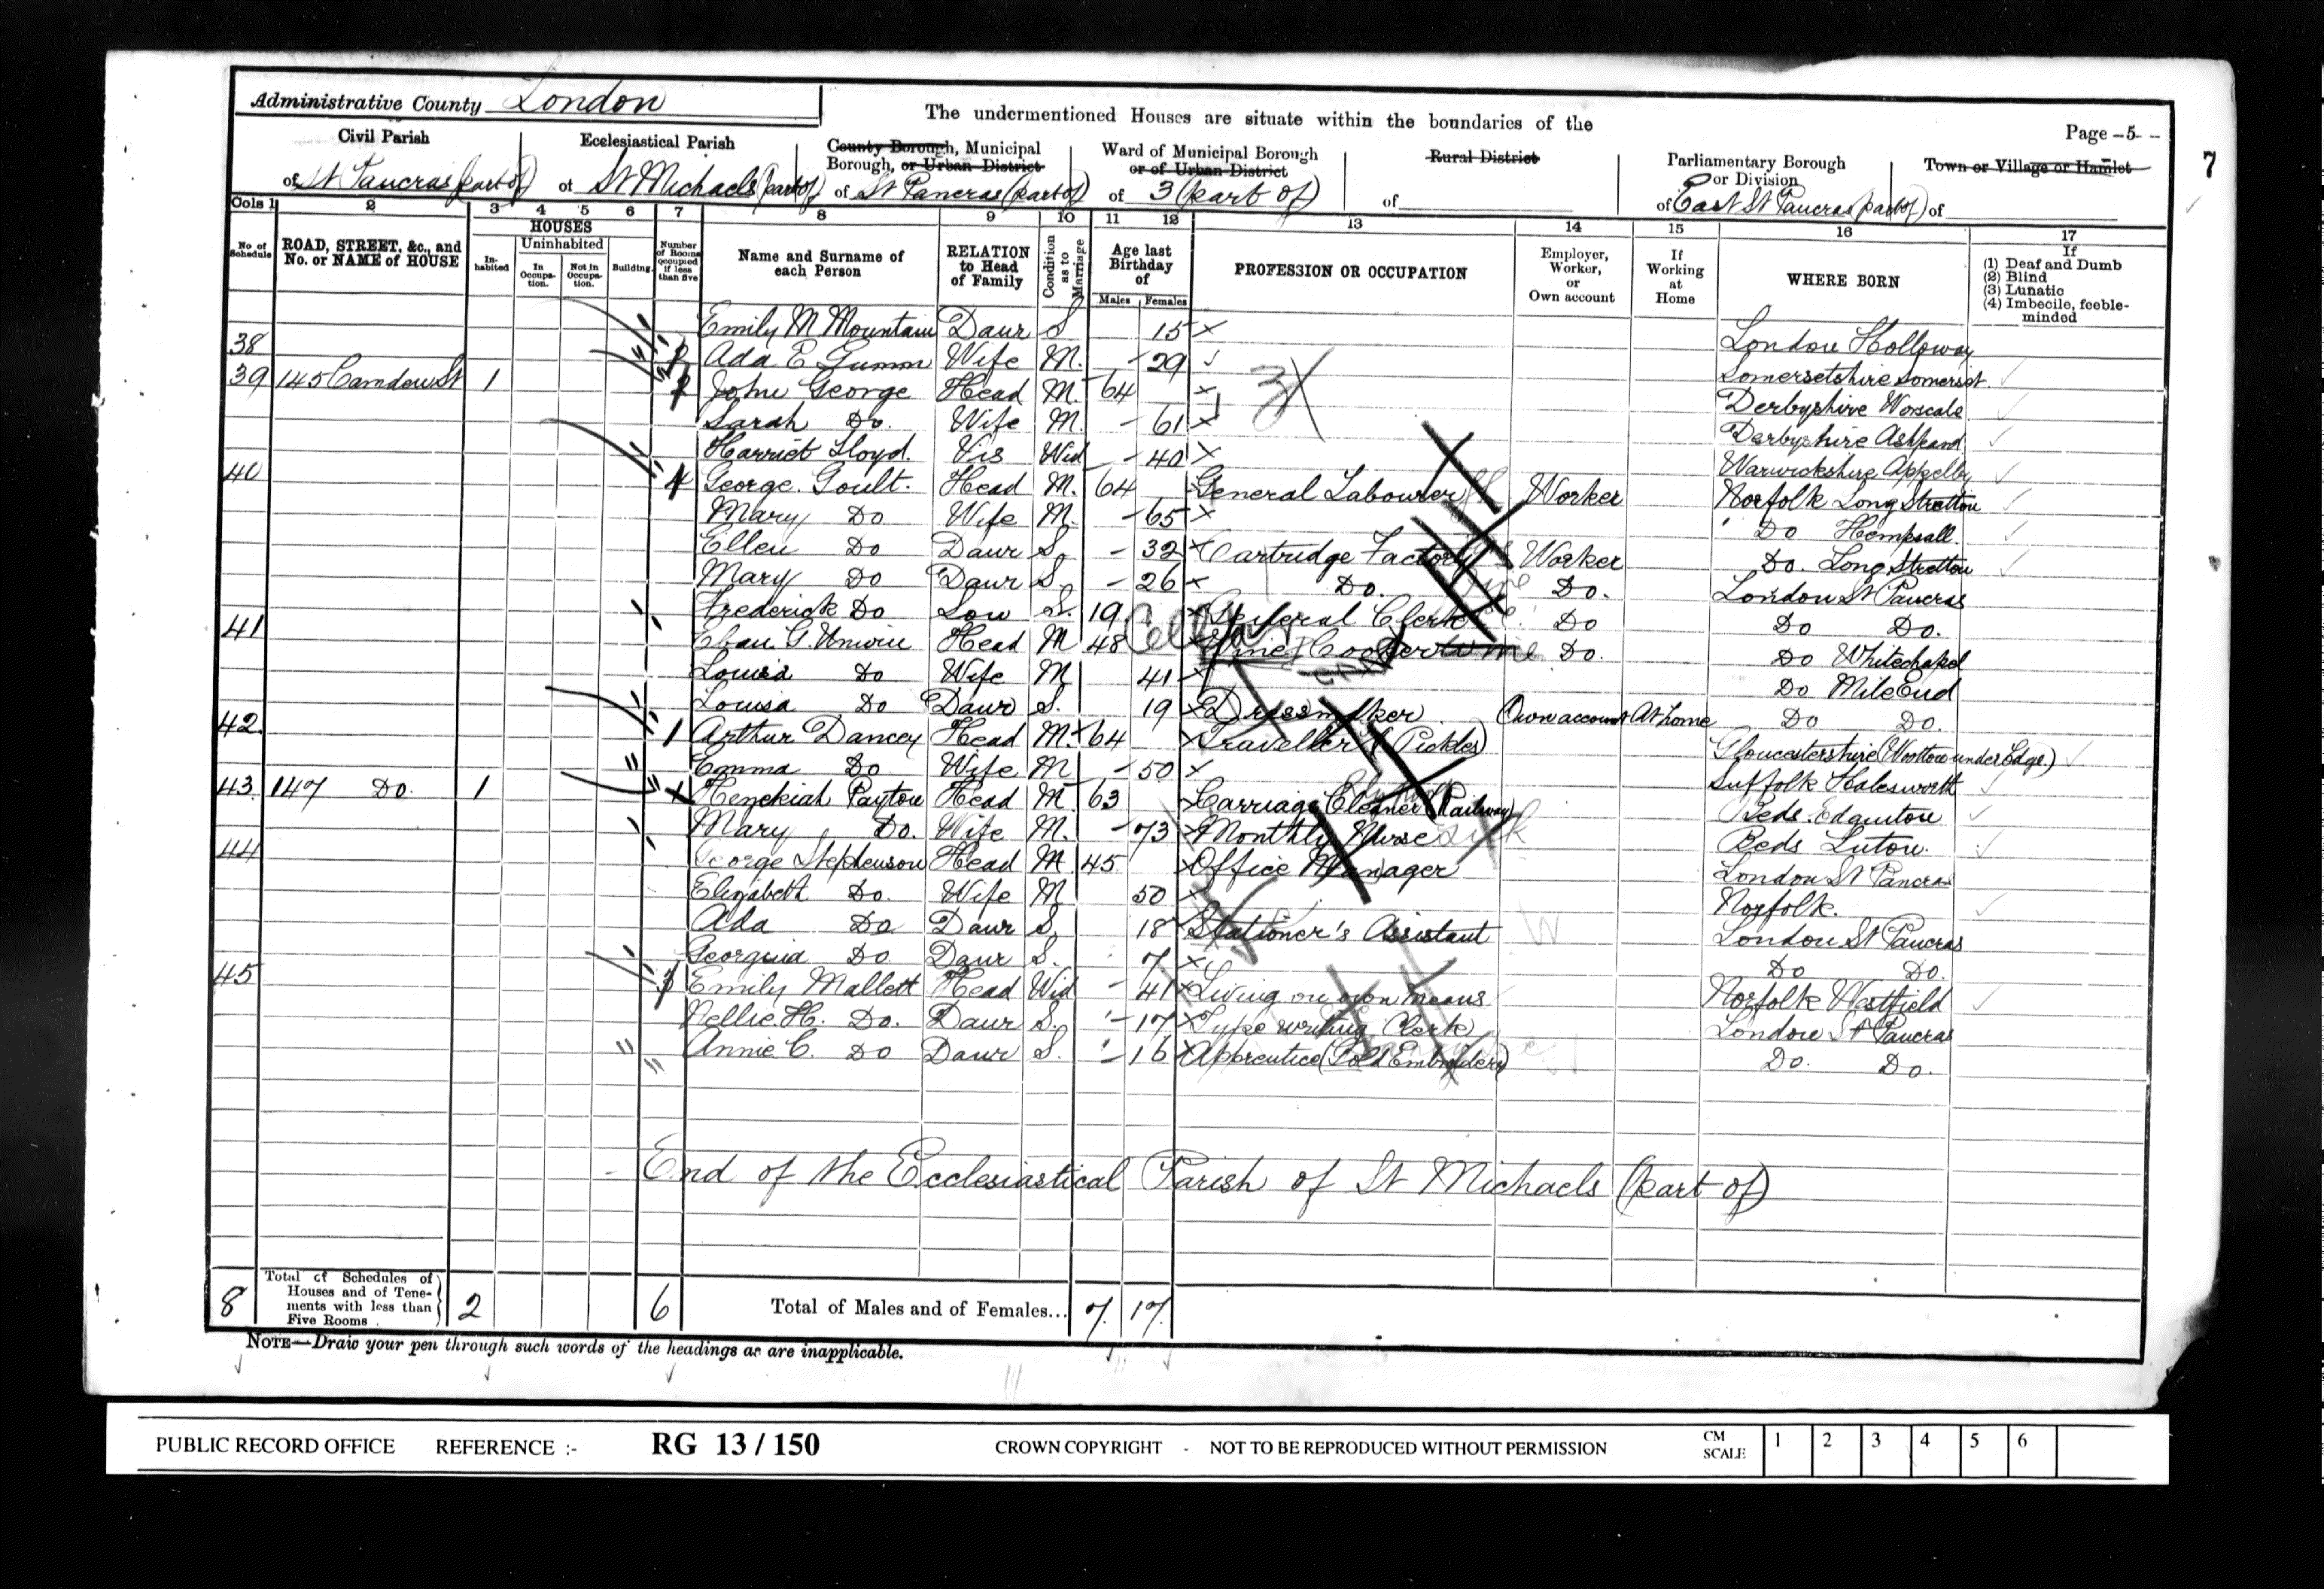 Administrative County London
The undermentioned Houses are situate within the boundaries of the
Page -5-
7
Civil Parish
of St Pancras (part of)
Ecclesiastical Parish
of St Michaels (part of)
County Borough, Municipal Borough, or Urban District
of St Pancras (part of)
Ward of Municipal Borough or of Urban District
of 3 (part of)
Rural District
of
Parliamentary Borough or Division
of East St Pancras (part of)
Town or Village or Hamlet
of
Cols 1 2 3 4 5 6 7 8 9 10 11 12 13 14 15 16 17
No. of Schedule
ROAD, STREET, &c., and No. or NAME of HOUSE
HOUSES
Inhabited
Uninhabited
In Occupation.
Not in Occupation.
Building.
Number of Rooms occupied if less than five
Name and Surname of each Person
RELATION to Head of Family
Condition as to Marriage
Age last Birthday of
Males Females
PROFESSION OR OCCUPATION
Employer, Worker, or Own account
If Working at Home
WHERE BORN
If
(1) Deaf and Dumb
(2) Blind
(3) Lunatic
(4) Imbecile, feeble-minded
Emily M Mountain Daur S 15 London Holloway
38 Ada E Gumm Wife M. 29 Somersetshire Somerset
39 145 Camden St 1 John George Head M. 64 Derbyshire
Sarah Do. Wife M. 61 Derbyshire
Harriet Lloyd. Vis Wid 40 Warwickshire
40 4 George Goult. Head M. 64 General Labourer Worker Norfolk Long Stretton
Mary Do Wife M. 65 Do Hempsall
Ellen Do Daur S. 32 Cartridge Factory Worker Do. Long Stretton
Mary Do Daur S. 26 Do. Do. London St Pancras
Frederick Do Son S. 19 General Clerk Do Do Do.
41 G. Unwin Head M 48 Wine Cooper Do. Do Whitechapel
Louisa Do Wife M 41 Do Mile End
Louisa Do Daur S. 19 Dressmaker Own account At home Do Do.
42. 1 Arthur Dancey Head M. 64 Traveller (Pickles) Gloucestershire (Wootton under Edge.)
Emma Do Wife M 50 Suffolk Halesworth
43. 147 Do. 1 Hezekiah Payton Head M 63 Carriage Cleaner (Railway) Beds.
Mary Do. Wife M. 73 Monthly Nurse Beds Luton.
44 George Stephenson Head M 45 Office Manager London St Pancras
Elizabeth Do. Wife M 50 Norfolk.
Ada Do Daur S. 18 Stationer's Assistant London St Pancras
Georgina Do Daur S. 7 Do Do.
45 3 Emily Mallett Head Wid 41 Living on own means Norfolk Westfield
Nellie H. Do. Daur S. 17 Type writing Clerk London St Pancras
Annie C. Do Daur S. 16 Apprentice (Gold Embroidery) Do. Do.
End of the Ecclesiastical Parish of St Michaels (part of)
8 Total of Schedules of Houses and of Tenements with less than Five Rooms 2 6 Total of Males and of Females... 7. 17.
NOTE—Draw your pen through such words of the headings as are inapplicable.
PUBLIC RECORD OFFICE REFERENCE :- RG 13 / 150 CROWN COPYRIGHT - NOT TO BE REPRODUCED WITHOUT PERMISSION CM SCALE 1 2 3 4 5 6